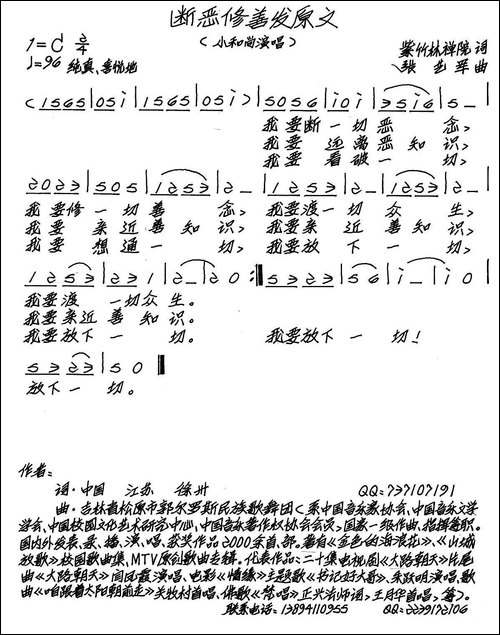 断恶修善发原文
(小和尚演唱)
1=C 2/4
♩=96 纯真、喜悦地
紫竹林禅院 词
张艺军 曲
(1565|05i|1565|05i)|5056|i0i|35i6|5-|
我要断一切恶 念,
我要 远离恶知 识,
我要 看破一 切,
2023|505|1253|2-|1253|2-|1253|2-|
我要修一切善 念,我要渡一切 众 生,
我要 亲近善知 识,我要亲 近 善知 识,
我要 想通一 切,我要放 下 一 切,
1253|231|2-|20:|5323|56|i-|i0|
我要渡 一切众生。
我要亲近善 知识。
我要放下一 切。 我要放下一 切!
5323|50‖
放下一 切。
作者:
词·中国 江苏 徐州 QQ:737107191
曲·吉林省松原市郭尔罗斯民族歌舞团(系中国音乐家协会、中国音乐文学
学会、中国校园文化艺术研究中心、中国音乐著作权协会会员)国家一级作曲、指挥兼职。
国内外发表、录、播、演、唱、获奖作品2000余首、部。著有《金色的海浪花》、《山城
放歌》校园歌曲集,MTV原创歌曲专辑。代表作品:二十集电视剧《大路朝天》片尾
曲《大路朝天》闫凤霞演唱、电影《情缘》主题歌《书记好大哥》、朱跃明演唱,歌
曲《咱跟着太阳朝前走》关牧村首唱,佛歌《梵唱》正兴法师词,王月华首唱,等)。
联系电话:13894110955 QQ:2239172106